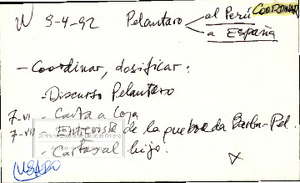 9-4-92 Pelantaro al Perú COORDINAR
a ESPAÑA
- Coordinar, dosificar:
- Discurso Pelantaro
7-VI - Carta a Loza
7-VII - Entrevista de la quebrada Barba-Pel.
- Cartas al hijo.
X
USADO